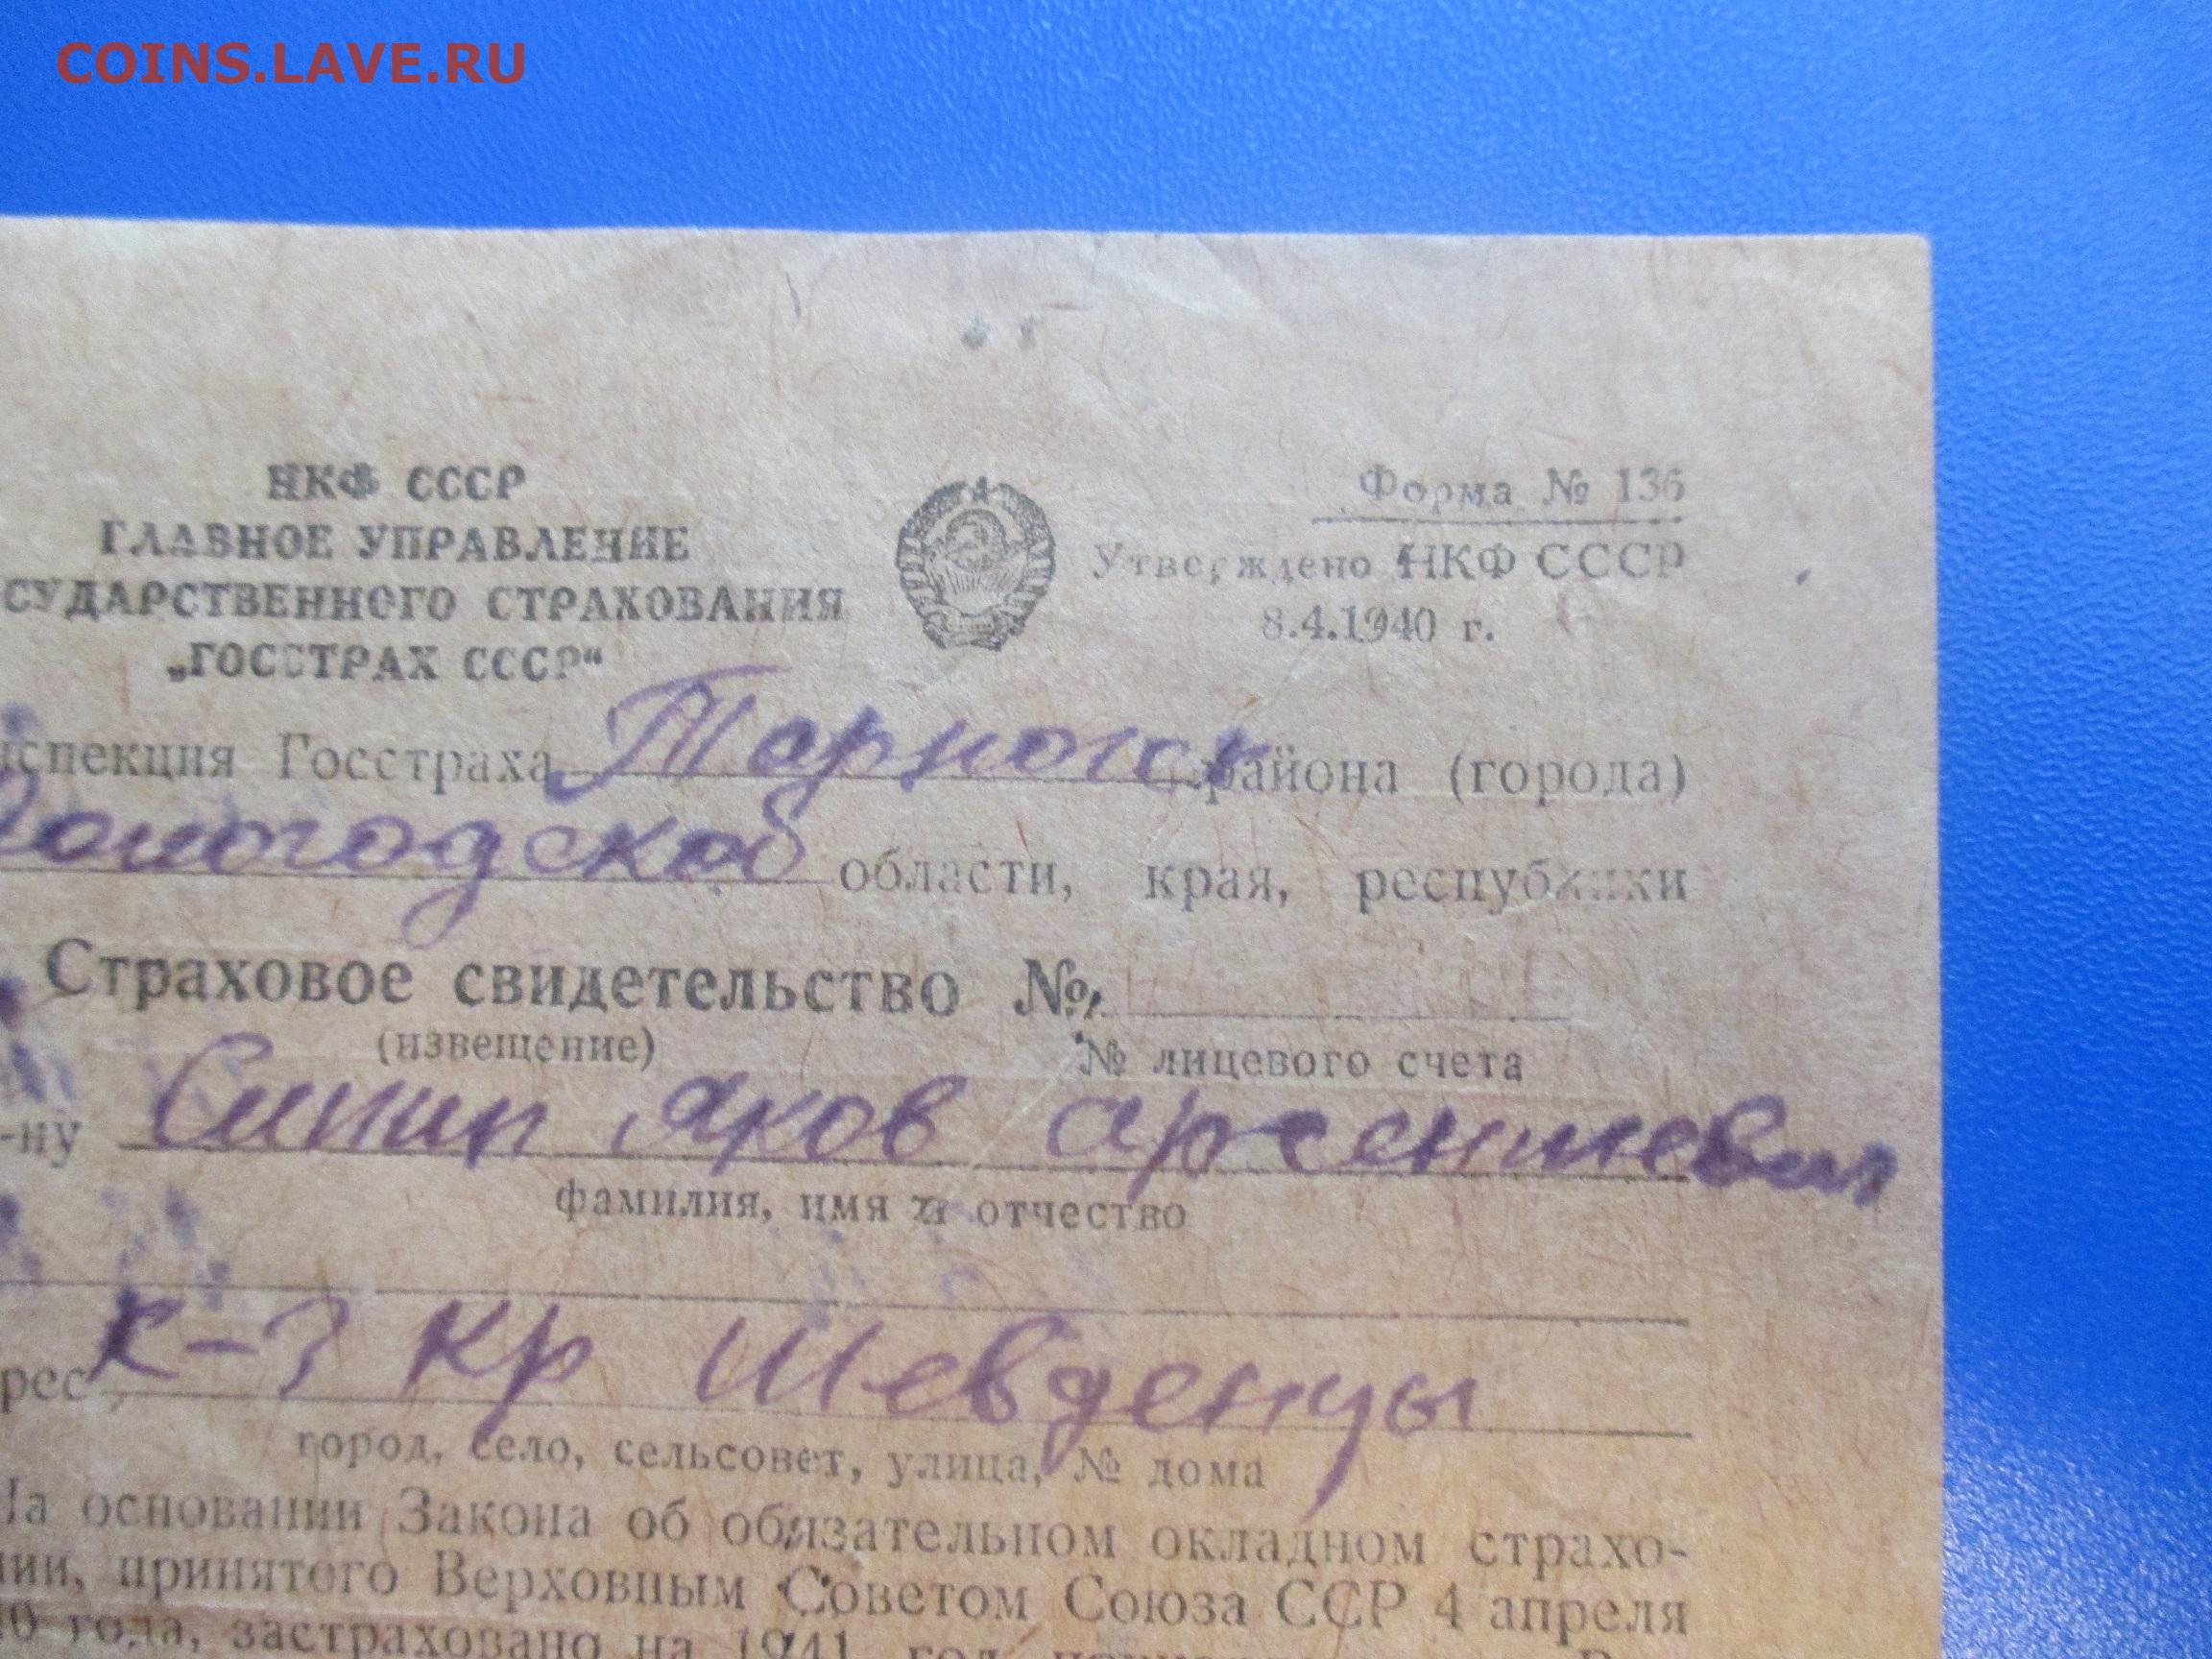 COINS.LAVE.RU
НКФ СССР
ГЛАВНОЕ УПРАВЛЕНИЕ
СУДАРСТВЕННОГО СТРАХОВАНИЯ
„ГОССТРАХ СССР“
Форма № 136
Утверждено НКФ СССР
8.4.1940 г.
спекция Госстраха Тарногск района (города)
Вологодской области, края, республики
Страховое свидетельство №
(извещение) № лицевого счета
-ну Синип Яков Арсениевич
фамилия, имя и отчество
рес К-з Кр Шевденцы
город, село, сельсовет, улица, № дома
На основании Закона об обязательном окладном страхо-
нии, принятого Верховным Советом Союза ССР 4 апреля
40 года, застраховано на 1941 год